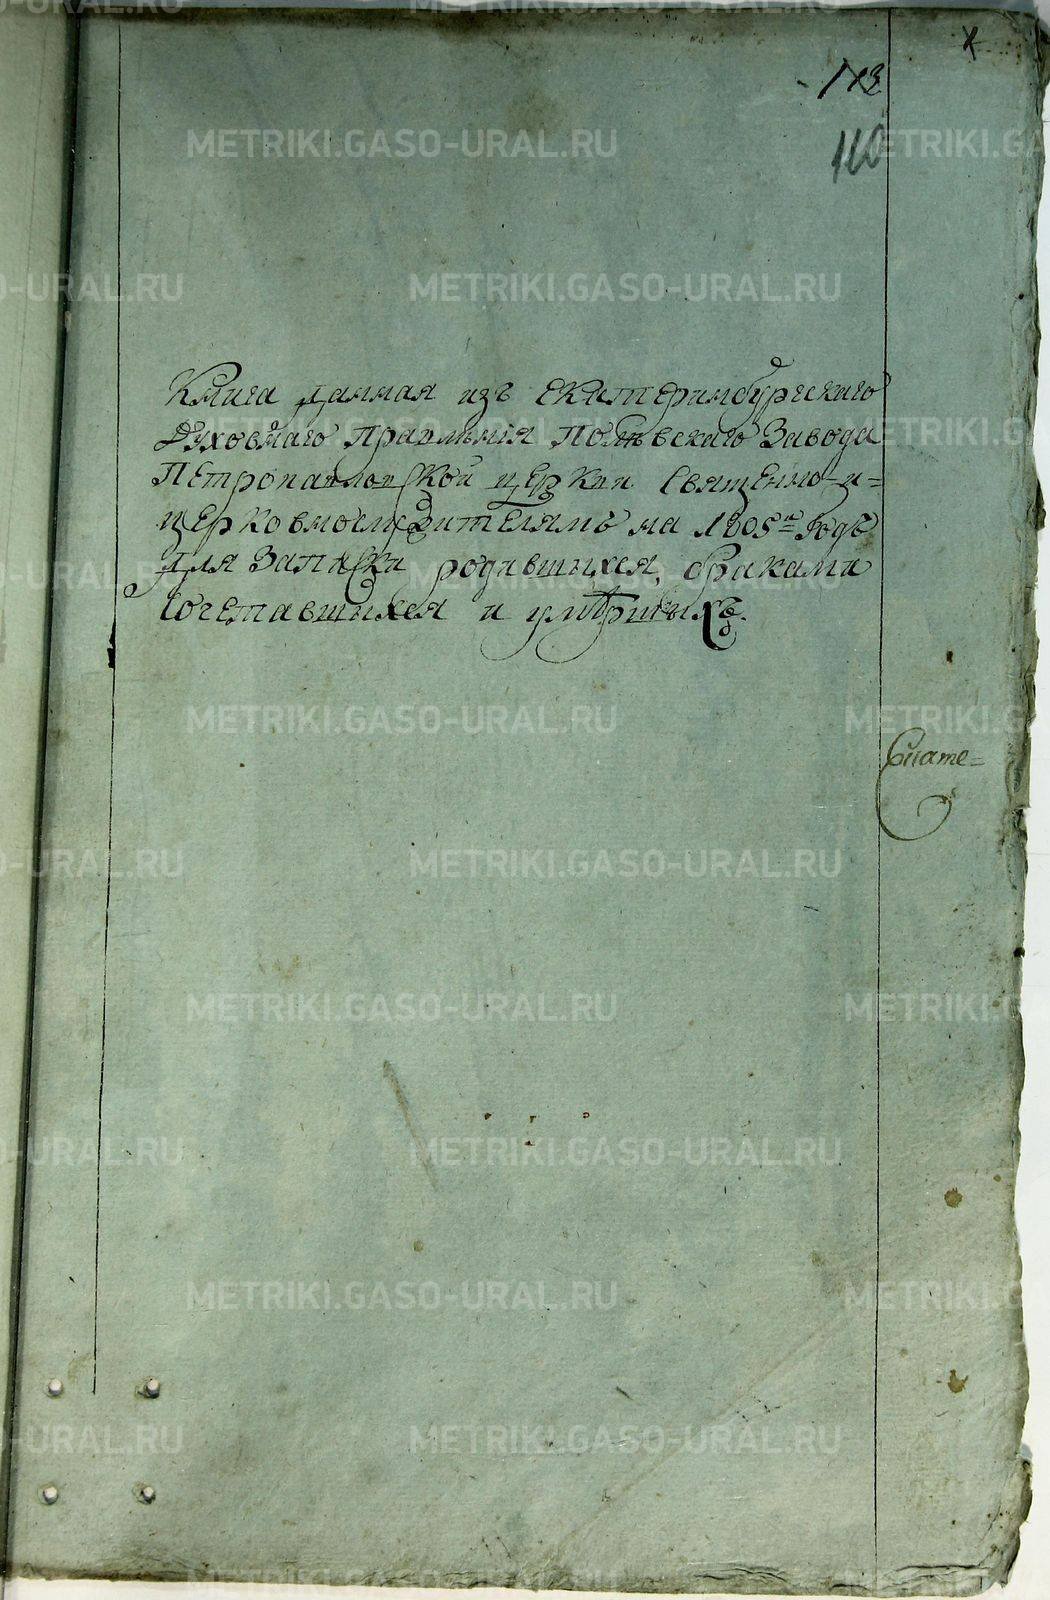 113
110
Книга данная изъ Екатеринбургскаго
Духовнаго Правленія Полѣвскаго Завода
Петропавловской церкви Священно-и=
церковнослужителямъ на 1805й Годъ
для Записки родившихся, браками
сочетавшихся и умершихъ.
METRIKI.GASO-URAL.RU